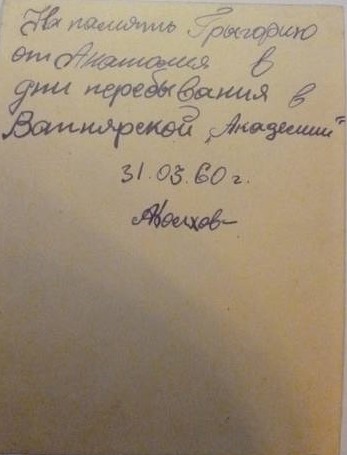 На память Грыгорию
от Анатолия в
дни перебывания в
Вапнярской „Академии"
31.03.60 г.